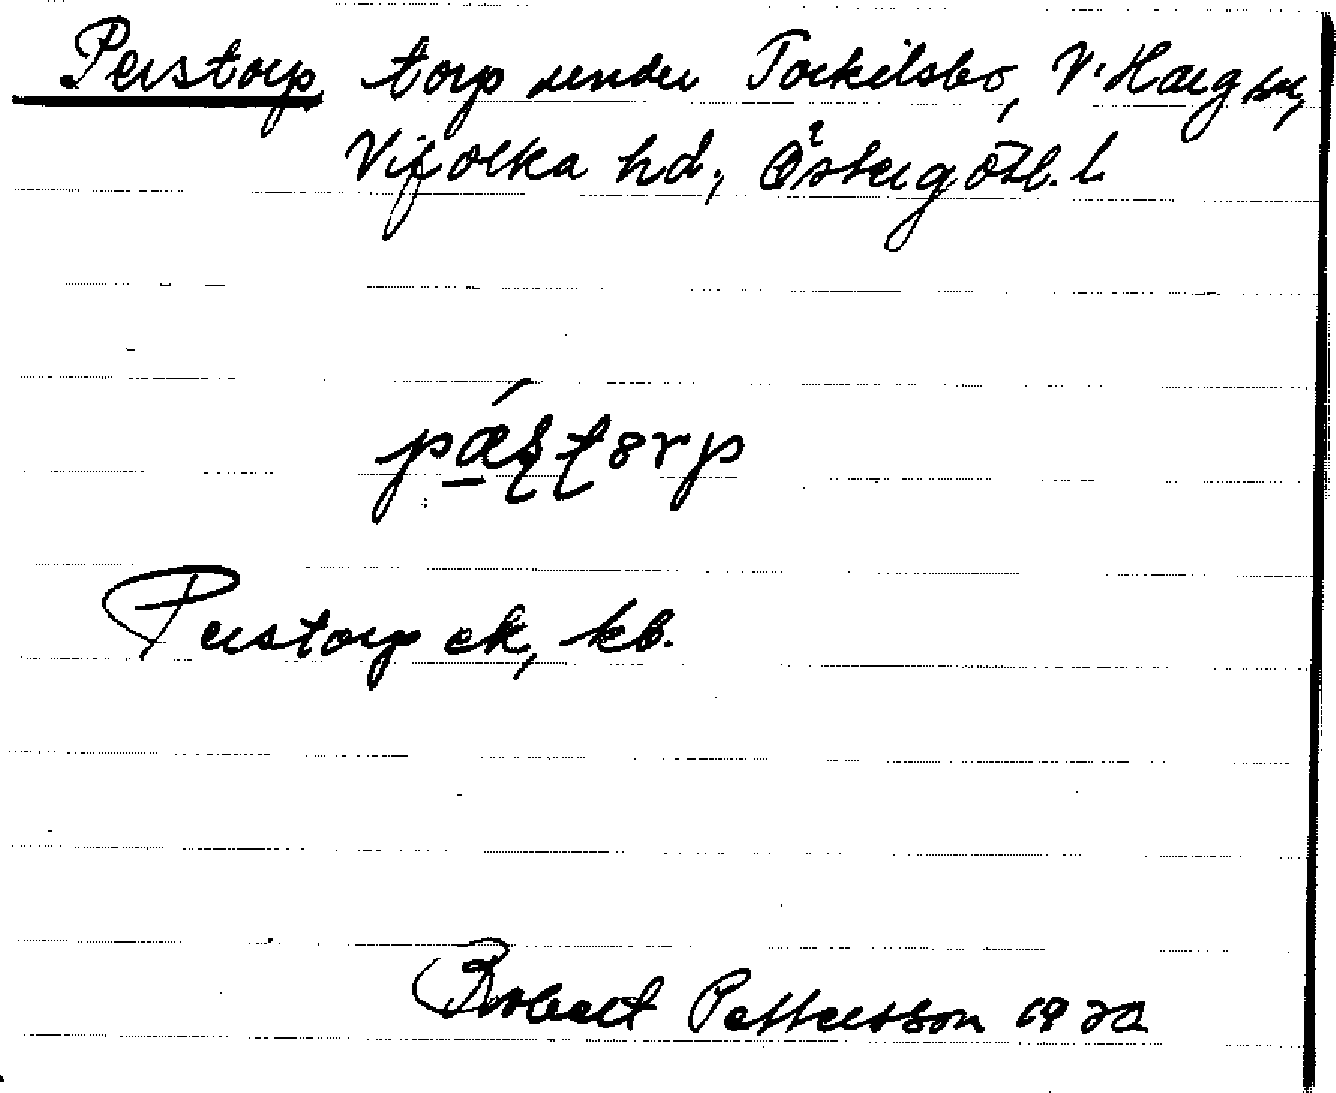 Perstorp torp under Torkilsbo, V. Harg sn,
Vifolka hd, Östergötl. l
pǽʂʈorp
Perstorp ek, kb.
Robert Pettersson 1920